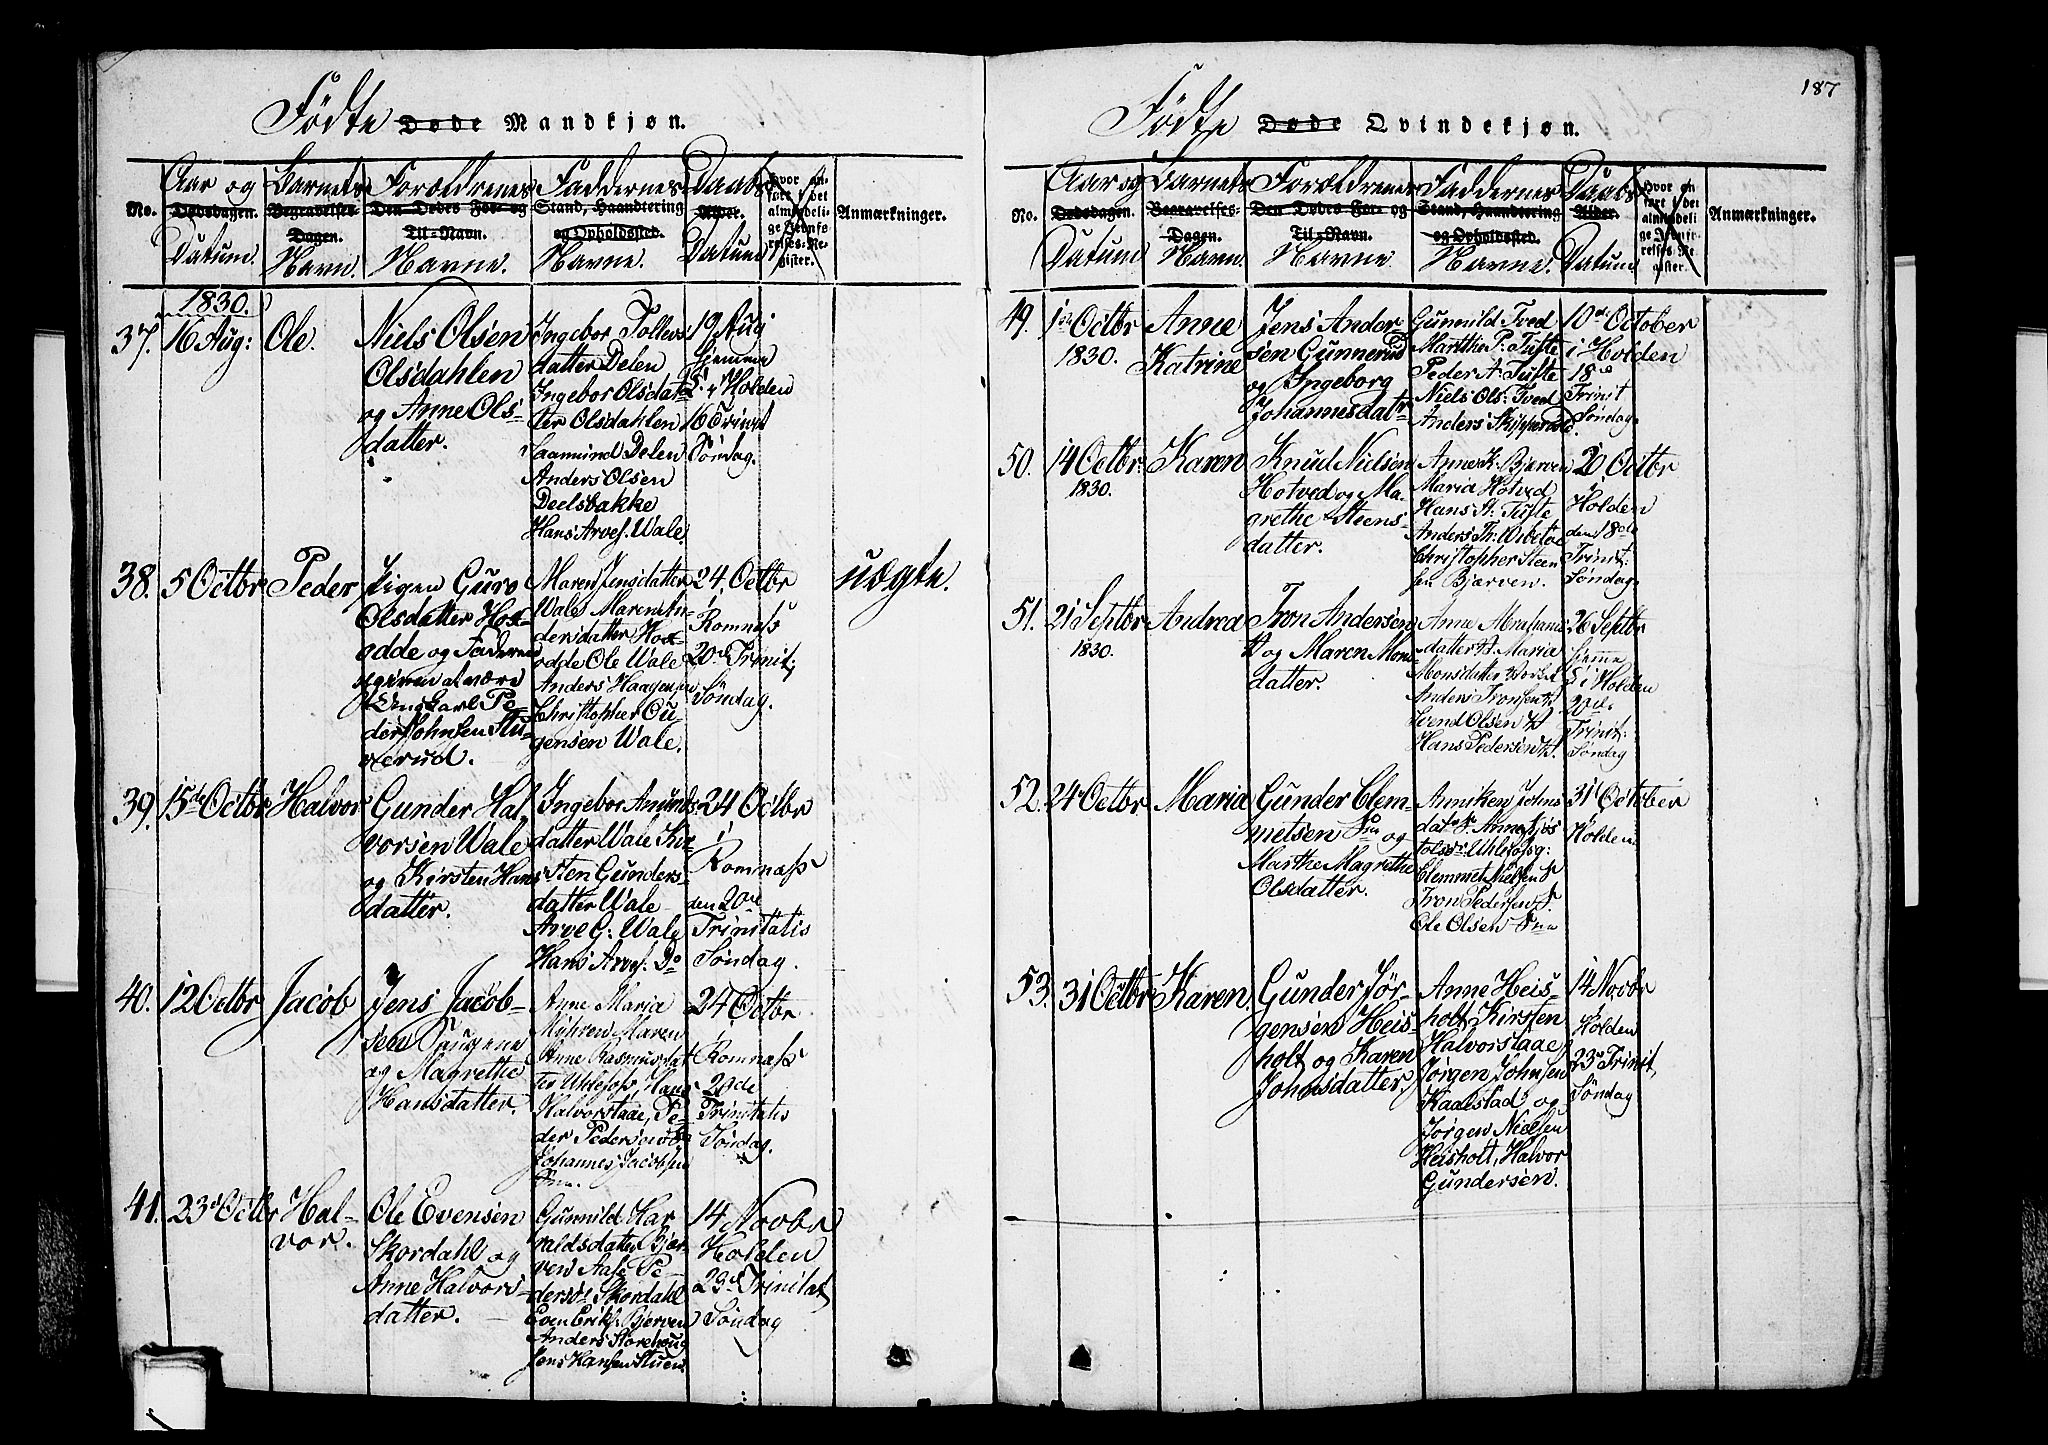 Fødte Døde Mandkjøn.
No.
Aar og
Dødsdagen.
Datum.
Barnets
Begravelses-
Dagen.
Navn.
Forældrenes
Den Dødes For- og
Til-Navn.
Navne.
Faddernes
Stand, Haandtering
og Opholdssted.
Navne.
Daabs
Alder.
Datum
Hvor an-
ført i det
almindeli-
ge Jevnfø-
relses-Re-
gister.
Anmærkninger.
1830.
37. 16 Aug: Ole.
Niels Olsen
Olsdahlen
og Anne Ols-
datter.
Ingebor Tollevs
datter Delen
Ingebor Olsdat-
ter Olsdahlen
Saamund Delen
Anders Olsen
Deelsbakke
Hans Arves. Wale.
19 Aug
hjemme
i Holden
16 Trinit
Søndag.
38. 5 Octbr Peder
Pigen Guro
Olsdatter Hox-
odde og Faderen
Ungkarl Pe-
der Johnsen Stu-
verud.
Maren Jensdatter
Wale, Maren An-
dersdatter Hox-
odde Ole Wale
Anders Haagensen
Christopher Ou-
gensen Wale.
24 Octbr
i
Romnæss
20de Trinit:
Søndag.
uægte.
39. 15de Octbr Halvor
Gunder Hal-
vorsen Wale
og Kirsten Hans
datter.
Ingebor Amunds-
datter Wale Kir-
sten Gunders-
datter Wale
Arve G: Wale
Hans Arves: Do
24 Octbr
i
Romnæss
den 20de
Trinitatis
Søndag.
40. 12 Octbr Jacob
Jens Jacob-
sen
og Magrethe
Hansdatter.
Anne Maria
Myhren Maren
Anne Rasmusdat
ter Uhlefoss, Hans
Halvorstaae, Pe-
der Peders
Johannes Jacobsen
24 Octbr
i
Romnæss
20de
Trinitatis
Søndag.
41. 23de Octbr Hal-
vor.
Ole Evensen
Skordahl og
Anne Halvors-
datter.
Gunnild Har
raldsdatter Bjer-
ven Aase Pe-
dersdr Skordahl
Even Eriks: Bjerven
Anders Storehoug
Jens Hansen Stuen
14 Novbr
Holden
23de Trinitat
Søndag
187
Fødte Døde Qvindekjøn.
No.
Aar og
Dødsdagen.
Datum
Barnets
Begravelses-
Dagen.
Navn.
Forældrenes
Den Dødes For- og
Til-Navn.
Navne
Faddernes
Stand, Haandtering
og Opholdssted.
Navne.
Daabs
Alder.
Datum
Hvor an-
ført i det
almindeli-
ge Jevnfø-
relses-Re-
gister.
Anmærkninger.
49. 1ste Octbr
1830.
Anne
Katrine
Jens Ander
sen Gunnerud
og Ingeborg
Johannesdatr
Gunnild Tved
Marthe P: Tufte
Peder A: Tufte
Niels Ols: Tved
Anders
10de October
i Holden
18de
Trinit
Søndag.
50. 14 Octbr:
1830.
Karen
Knud Nielsen
Hotved og Ma-
grethe Steens-
datter.
Anne K: Bjerven
Maria Hotved
Hans St: Tufte
Anders Th: Wibetoe
Christopher Steen
sen Bjerven.
20 Octbr
i
Holden
den 18de
Trinit:
Søndag
51. 21 Septbr
1830.
Andrea
Tron Andersen
og Maren Mons
datter.
Anne Abrahams
datter Maria
Monsdatter
Anders Tronsen
Svend Olsen
Hans Pedersen
26 Septbr
hjemme
i Holden
20de
Trinit:
Søndag
52. 24 Octbr Maria
Gunder Clem-
metsen og
Marthe Magrethe
Olsdatter.
Anniken Johns
datr Anne
Clemmet Nielsen
Tron Pedersen
Ole Olsen
31 October
i
Holden
53. 31 Octbr Karen
Gunder Jør-
gensen Heis-
holt og Karen
Johnsdatter.
Anne Heis-
holt Kirsten
Halvorstaae
Jørgen Johnsen
Kaalstad og
Jørgen Nielsen
Heisholt, Halvor
Gundersen.
14 Novbr
Holden
23de Trinit.
Søndag